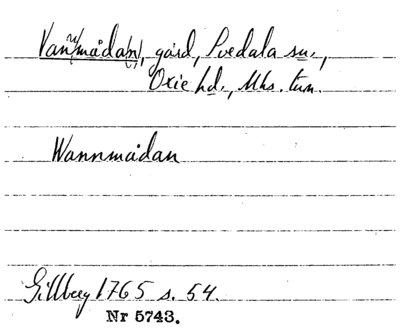 Van(n)mådan(,), gård, Svedala sn.,
Oxie hd., Mhs. län.
Wannmådan
Gillberg 1765 s. 54.
Nr 5743.